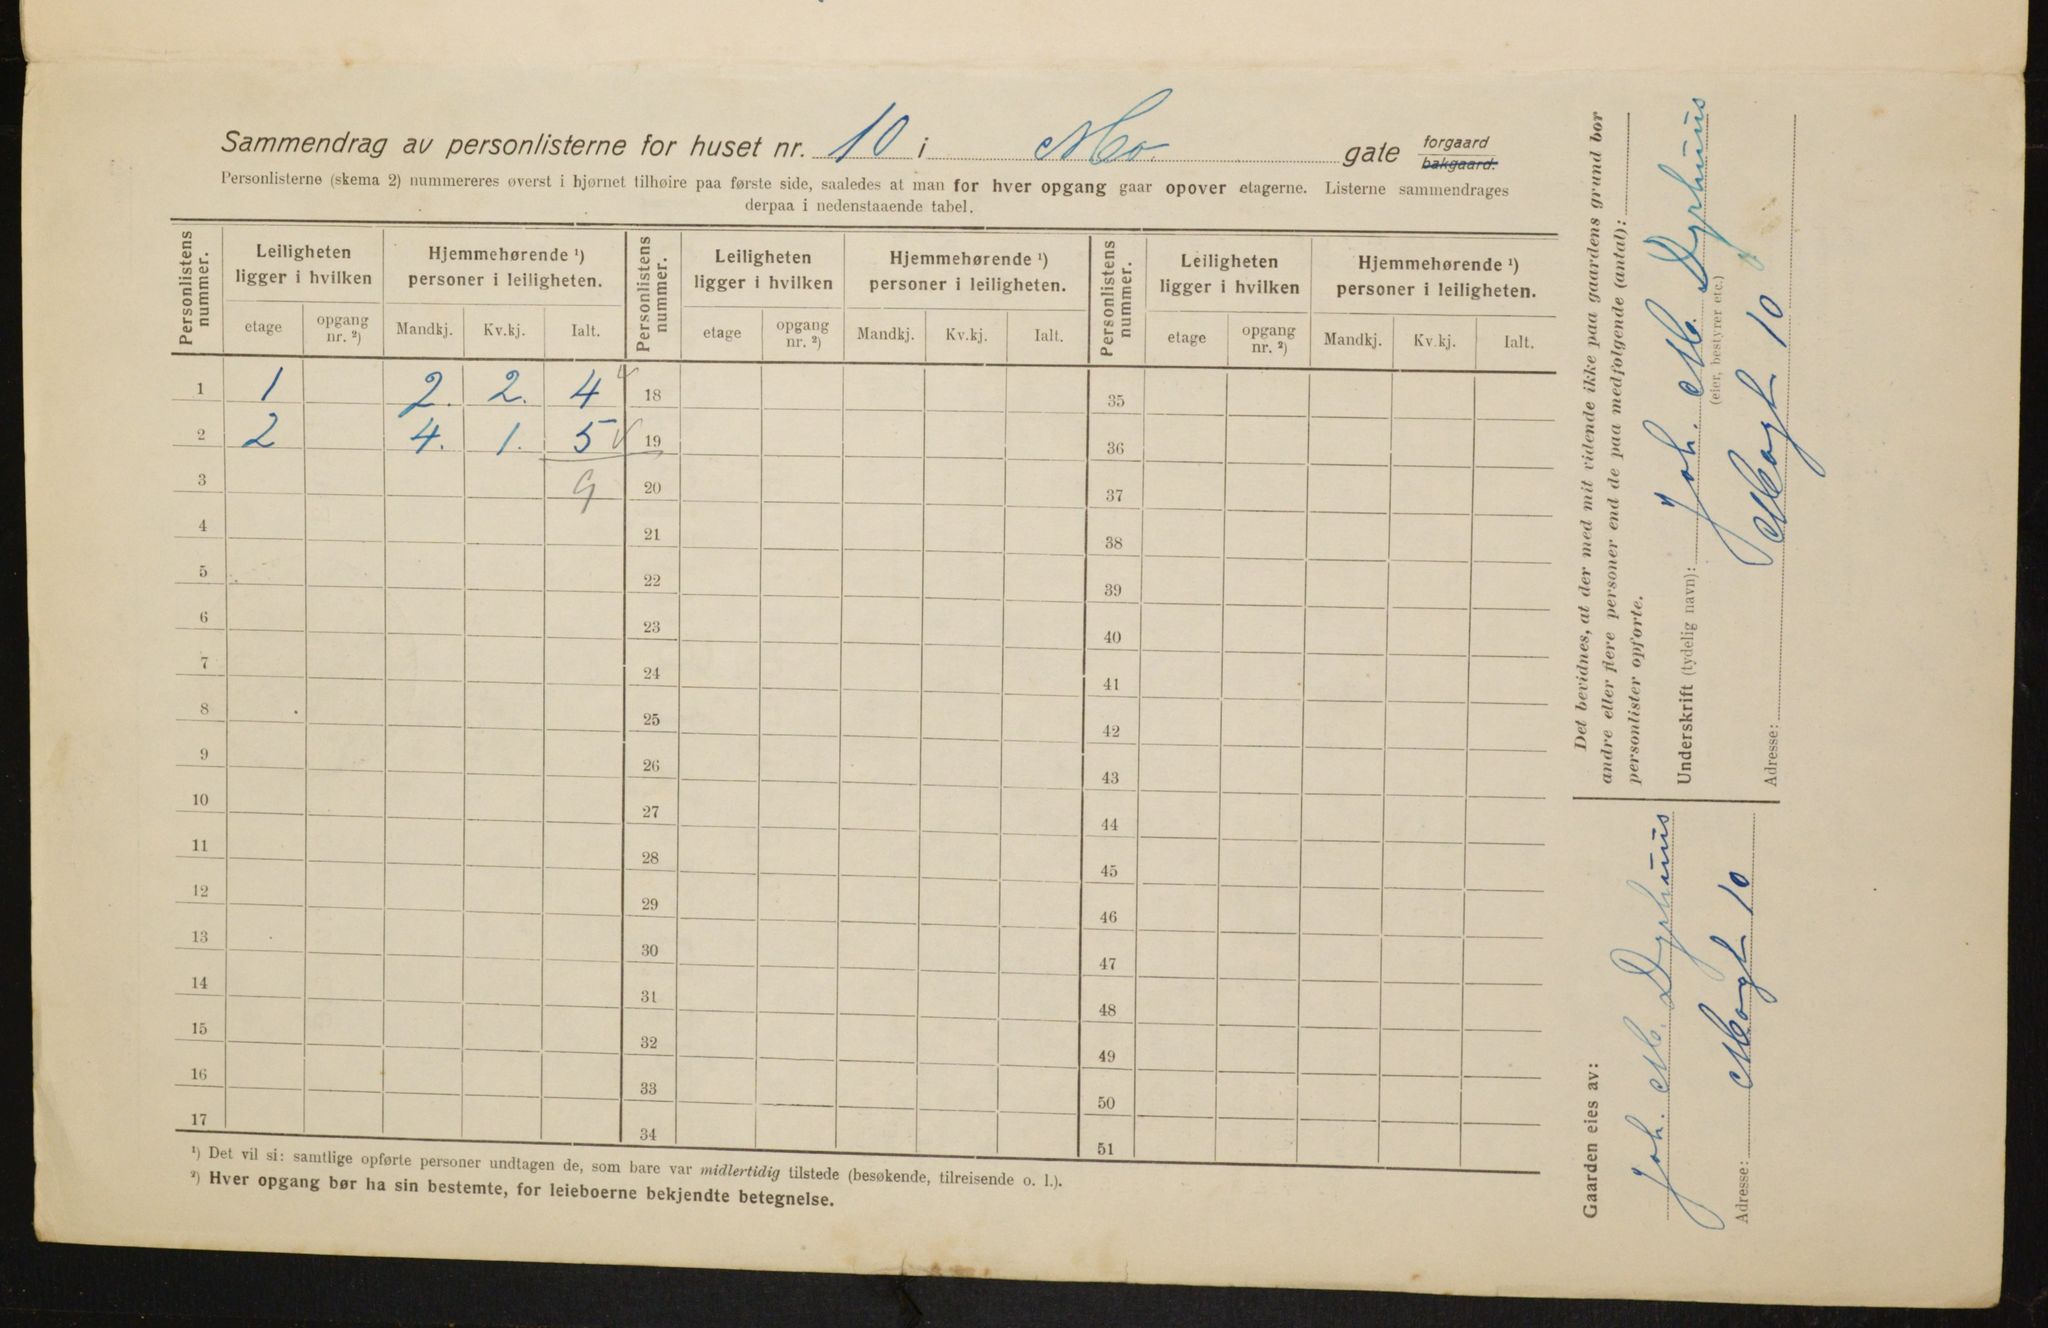 Sammendrag av personlisterne for huset nr. 10 i Mo gate forgaard bakgaard.
Personlisterne (skema 2) nummereres øverst i hjørnet tilhøire paa første side, saaledes at man for hver opgang gaar opover etagerne. Listerne sammendrages
derpaa i nedenstaaende tabel.
Personlistens nummer. Leiligheten ligger i hvilken Hjemmehørende ¹) personer i leiligheten. Personlistens nummer. Leiligheten ligger i hvilken Hjemmehørende ¹) personer i leiligheten. Personlistens nummer. Leiligheten ligger i hvilken Hjemmehørende ¹) personer i leiligheten.
etage opgang nr. ²) Mandkj. Kv.kj. Ialt. etage opgang nr. ²) Mandkj. Kv.kj. Ialt. etage opgang nr. ²) Mandkj. Kv.kj. Ialt.
1 1 2. 2. 4 18 35
2 2 4. 1. 5 19 36
3 9 20 37
4 21 38
5 22 39
6 23 40
7 24 41
8 25 42
9 26 43
10 27 44
11 28 45
12 29 46
13 30 47
14 31 48
15 32 49
16 33 50
17 34 51
¹) Det vil si: samtlige opførte personer undtagen de, som bare var midlertidig tilstede (besøkende, tilreisende o. l.).
²) Hver opgang bør ha sin bestemte, for leieboerne bekjendte betegnelse.
Det bevidnes, at der med mit vidende ikke paa gaardens grund bor
andre eller flere personer end de paa medfølgende (antal):
personlister opførte.
Underskrift (tydelig navn): Joh. M. Dyrhuus
(eier, bestyrer etc.)
Adresse: Mogt 10
Gaarden eies av:
Joh. M. Dyrhuus
Adresse: Mogt 10